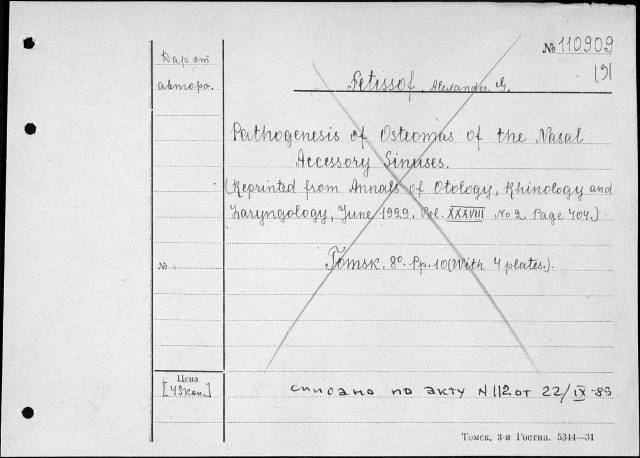 № 110909
191
Дар от
автора.
Fetissof, Alexander G.
Pathogenesis of Osteomas of the Nasal
Accessory Sinuses.
(Reprinted from Annals of Otology, Rhinology and
Laryngology, June 1929. Vol. XXXVIII No 2. Page 404.)
№
Tomsk. 8°. Pp. 10 (With 4 plates.).
Цена
[43коп.]
списано по акту N 112 от 22/IX-89
Томск, 3-я Гостип. 5344—31